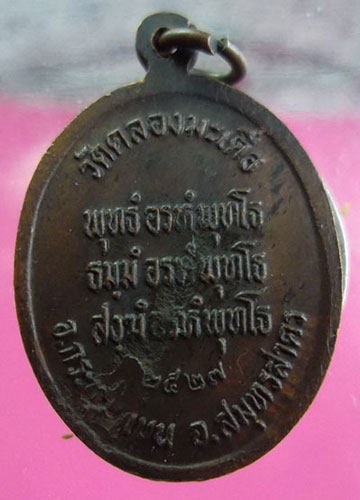 วัดคลองมะเดื่อ
พุทธํ อรหํ พุทโธ
ธมฺมํ อรหํ พุทโธ
สงฺฆํ อรหํ พุทโธ
๒๕๒๗
อ.กระทุ่มแบน จ.สมุทรสาคร